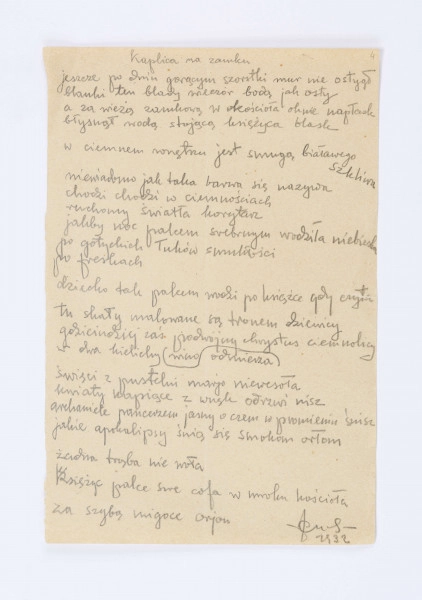 Kaplica na zamku
jeszcze po dniu gorącym szorstki mur nie ostygł
blanki ten blady wieczór bodą jak osty
a za wieżą zamkową w kościoła oknie
błysnął wodą stojącą księżyca blask
w ciemnem wnętrzu jest smuga białawego
szkliwa
niewiadomo jak taka barwa się nazywa
chodzi chodzi w ciemnościach
ruchomy światła korytarz
jakby noc palcem srebrnym wodziła
po gotyckich łuków smukłości
po freskach
dziecko tak palcem wodzi po książce gdy czyta
tu skały malowane są tronem dziewicy
gościnniej zaś podwójny chrystus ciemnolicy
z dwu kielichy wino odmierza
święci z pustelni marzą niewesoła
kwiaty kapiące z wnęk odrzwi nisz
archanioł pancerzem jasny o czem w promieniu śnisz
jakie apokalipsy śnią się smokom orłom
żadna trąba nie woła
Księżyc palce swe cofa w mroku kościoła
za szybą migoce orjon
1932